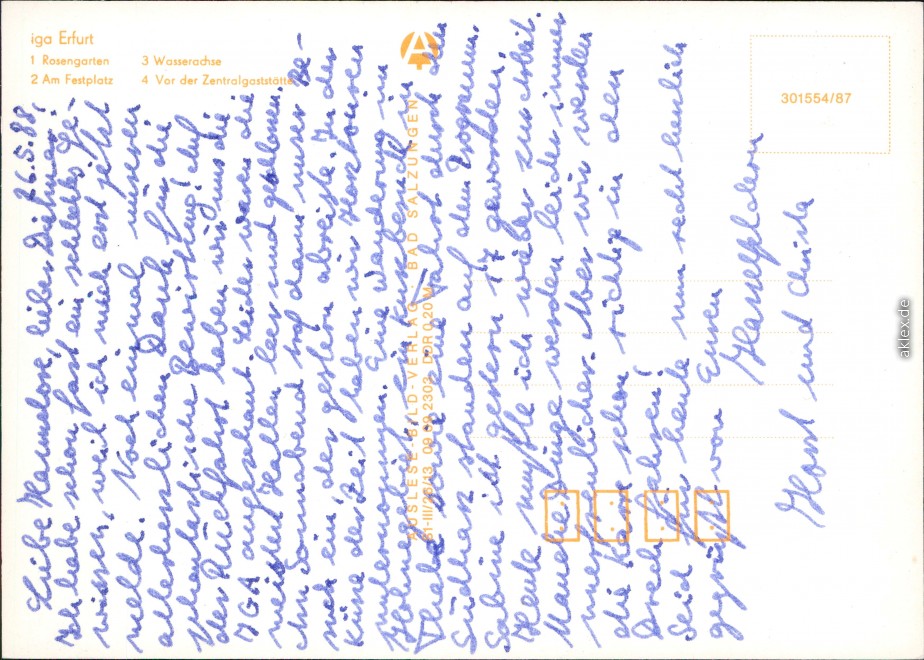 iga Erfurt
1 Rosengarten 3 Wasserachse
2 Am Festplatz 4 Vor der Zentralgaststätte
301554/87
AUSLESE-BILD-VERLAG · BAD SALZUNGEN
S1-III/26/13 09 09 2303 DDR 0,20 M
26.5.88.
Liebe Hannelore, lieber Dietmar!
Ich habe schon fast ein schlechtes Ge-
wissen, weil ich mich erst jetzt
melde. Noch einmal unseren
allerherzlichen Dank für die
phantastische Bewirtung! Auf
der Rückfahrt haben wir uns die
IGA angeschaut. Leider waren die
meisten Hallen leer und geblieben.
Am Sonnabend traf dann unser Be-
such ein, der gestern abreiste. In der
Kürze der Zeit haben wir Hochtouren
unternommen. Eine Wanderung im
Höhnegebiet, ein Kurzbesuch im
Theater sowie eine Fahrt durch den
Südharz standen auf dem Programm.
Sabine ist gestern 17 geworden.
Heute mußte ich wieder zur Arbeit.
Manche Dinge werden leider immer
unerfreulicher. Aber wir werden
die Karre schon richtig in den
Dreck fahren!
Seid für heute nun recht herzlich
gegrüßt von Euren
Hasselfeldern
Horst und Christa
aklex.de